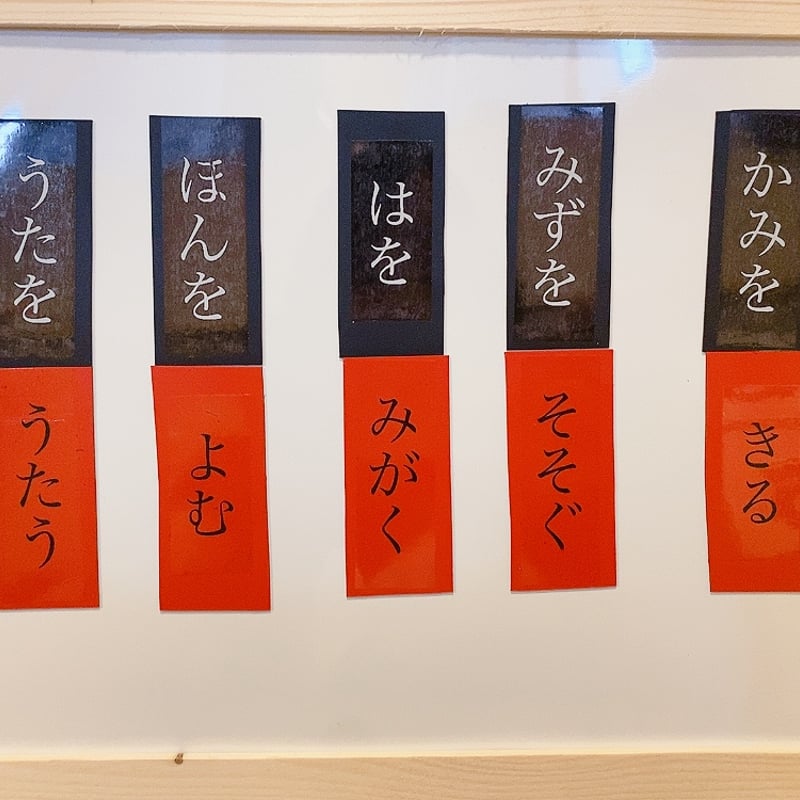 かみを
きる
みずを
そそぐ
はを
みがく
ほんを
よむ
うたを
うたう